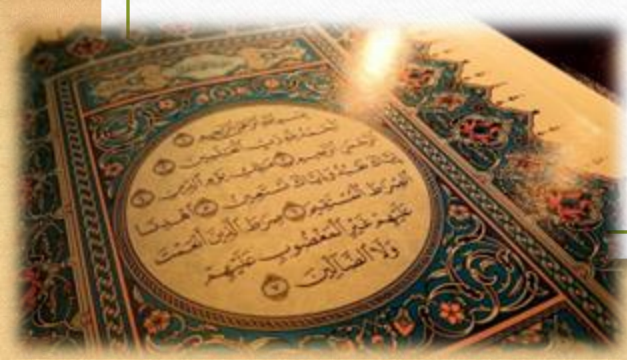 بِسْمِ اللَّهِ الرَّحْمَٰنِ الرَّحِيمِ ١
الْحَمْدُ لِلَّهِ رَبِّ الْعَٰلَمِينَ ٢
الرَّحْمَٰنِ الرَّحِيمِ ٣ مَٰلِكِ يَوْمِ الدِّينِ ٤
إِيَّاكَ نَعْبُدُ وَإِيَّاكَ نَسْتَعِينُ ٥ اهْدِنَا
الصِّرَٰطَ الْمُسْتَقِيمَ ٦ صِرَٰطَ الَّذِينَ أَنْعَمْتَ
عَلَيْهِمْ غَيْرِ الْمَغْضُوبِ عَلَيْهِمْ
وَلَا الضَّالِّينَ ٧